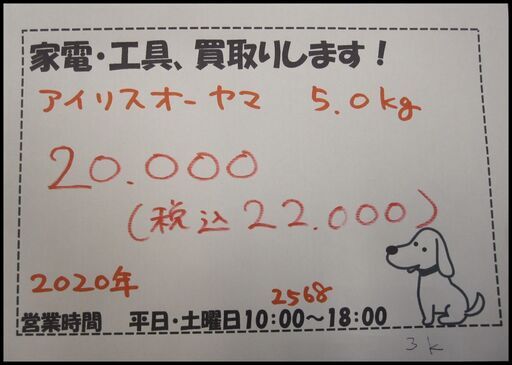 家電・工具、買取りします！
アイリスオーヤマ 5.0kg
20.000
(税込22.000)
2020年
2568
営業時間 平日・土曜日10:00～18:00
3k